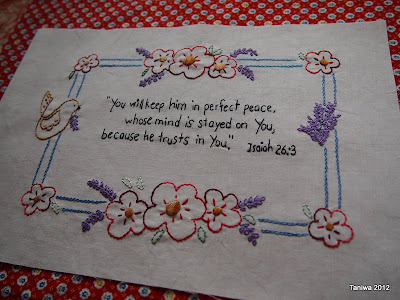 "You will keep him in perfect peace,
whose mind is stayed on You,
because he trusts in You."
Isaiah 26:3
Taniwa 2012